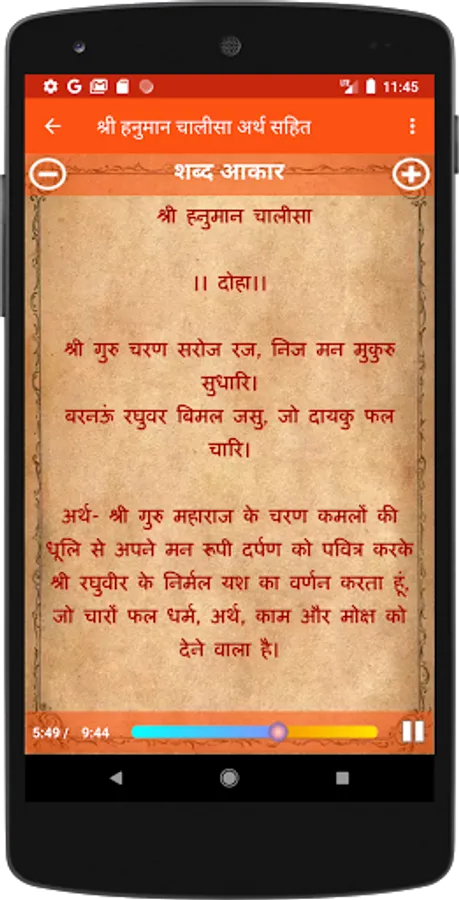 11:45
श्री हनुमान चालीसा अर्थ सहित
शब्द आकार
श्री हनुमान चालीसा
।। दोहा।।
श्री गुरु चरण सरोज रज, निज मन मुकुरु
सुधारि।
बरनऊं रघुवर बिमल जसु, जो दायकु फल
चारि।
अर्थ- श्री गुरु महाराज के चरण कमलों की
धूलि से अपने मन रूपी दर्पण को पवित्र करके
श्री रघुवीर के निर्मल यश का वर्णन करता हूं,
जो चारों फल धर्म, अर्थ, काम और मोक्ष को
देने वाला है।
5:49 / 9:44